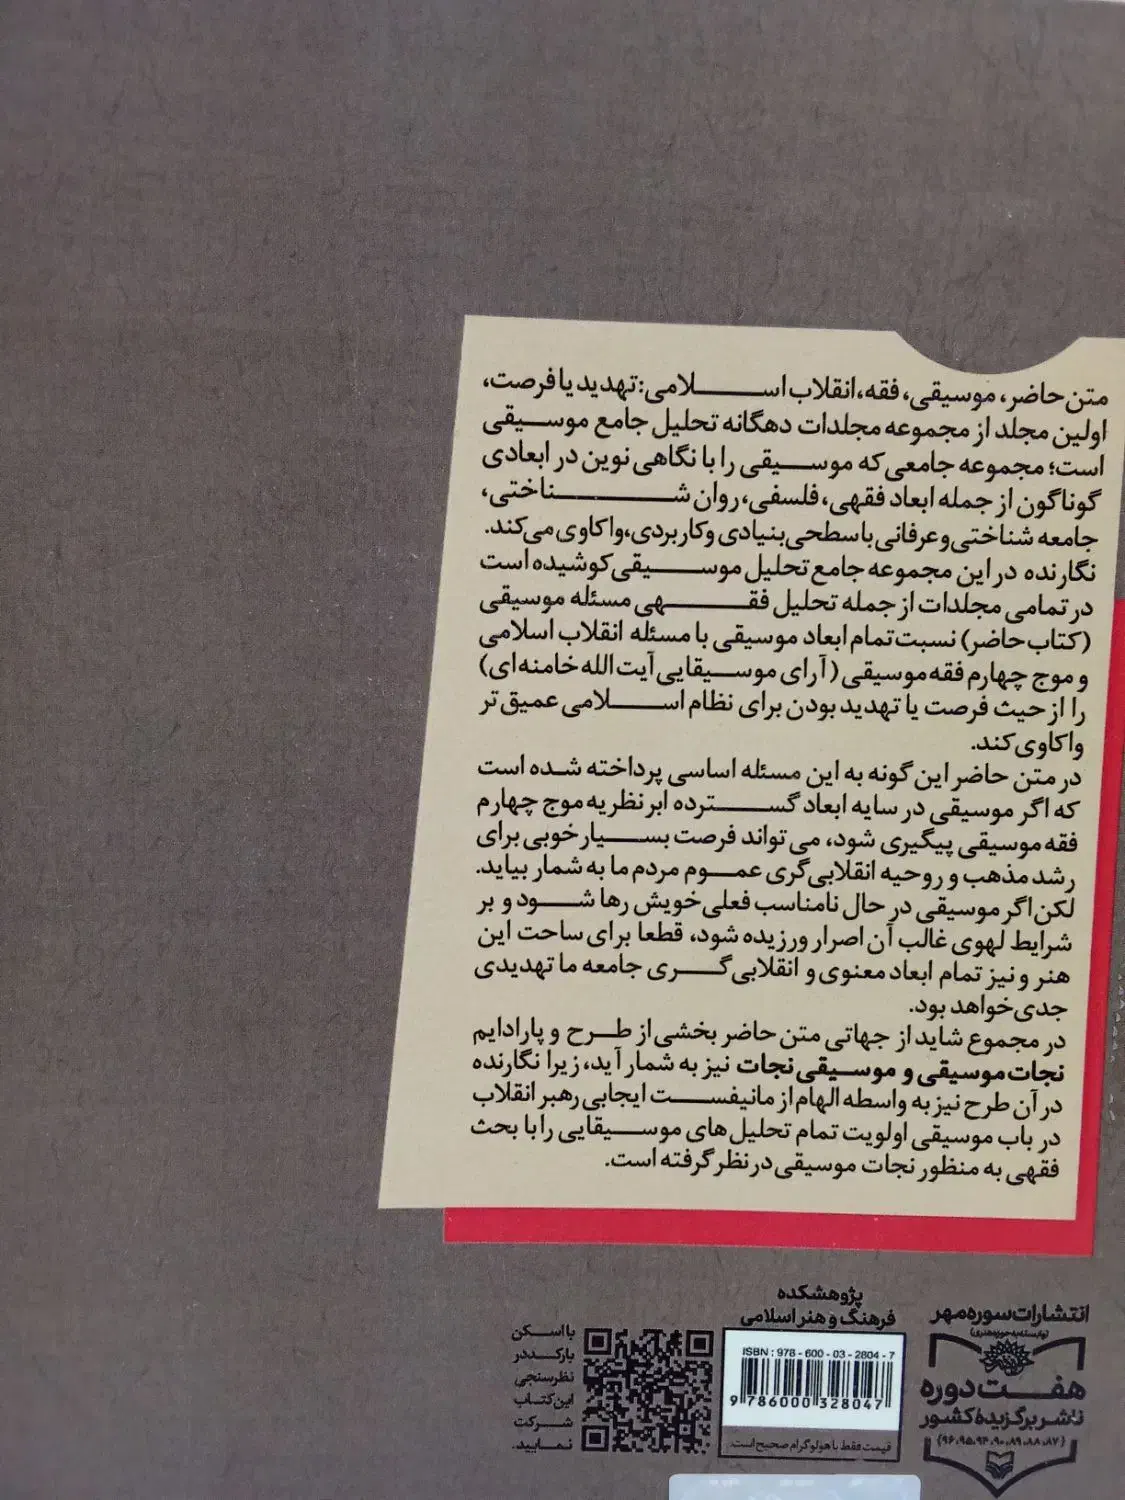 متن حاضر، موسیقی، فقه، انقلاب اسلامی: تهدید یا فرصت،
اولین مجلد از مجموعه مجلدات دهگانه تحلیل جامع موسیقی
است؛ مجموعه جامعی که موسیقی را با نگاهی نوین در ابعادی
گوناگون از جمله ابعاد فقهی، فلسفی، روان شناختی،
جامعه شناختی و عرفانی با سطحی بنیادی و کاربردی، واکاوی می‌کند.
نگارنده در این مجموعه جامع تحلیل موسیقی کوشیده است
در تمامی مجلدات از جمله تحلیل فقهی مسئله موسیقی
(کتاب حاضر) نسبت تمام ابعاد موسیقی با مسئله انقلاب اسلامی
و موج چهارم فقه موسیقی (آرای موسیقایی آیت الله خامنه‌ای)
را از حیث فرصت یا تهدید بودن برای نظام اسلامی عمیق تر
واکاوی کند.
در متن حاضر این گونه به این مسئله اساسی پرداخته شده است
که اگر موسیقی در سایه ابعاد گسترده ابر نظریه موج چهارم
فقه موسیقی پیگیری شود، می تواند فرصت بسیار خوبی برای
رشد مذهب و روحیه انقلابی‌گری عموم مردم ما به شمار بیاید.
لکن اگر موسیقی در حال نامناسب فعلی خویش رها شود و بر
شرایط لهوی غالب آن اصرار ورزیده شود، قطعا برای ساحت این
هنر و نیز تمام ابعاد معنوی و انقلابی‌گری جامعه ما تهدیدی
جدی خواهد بود.
در مجموع شاید از جهاتی متن حاضر بخشی از طرح و پارادایم
نجات موسیقی و موسیقی نجات نیز به شمار آید، زیرا نگارنده
در آن طرح نیز به واسطه الهام از مانیفست ایجابی رهبر انقلاب
در باب موسیقی اولویت تمام تحلیل های موسیقایی را با بحث
فقهی به منظور نجات موسیقی در نظر گرفته است.
انتشارات سوره مهر
(وابسته به حوزه هنری)
هفت دوره
ناشر برگزیدهٔ کشور
(۸۷، ۸۸، ۸۹، ۹۰، ۹۴، ۹۵، ۹۶)
پژوهشکده
فرهنگ و هنر اسلامی
ISBN : 978 - 600 - 03 - 2804 - 7
9 786000 328047
قیمت فقط با هولوگرام صحیح است.
با اسکن
بارکد در
نظرسنجی
این کتاب
شرکت
نمایید.